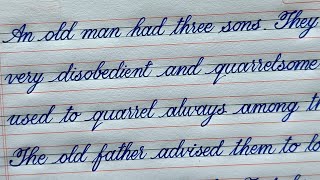 An old man had three sons. They
very disobedient and quarrelsome
used to quarrel always among th
The old father advised them to lo